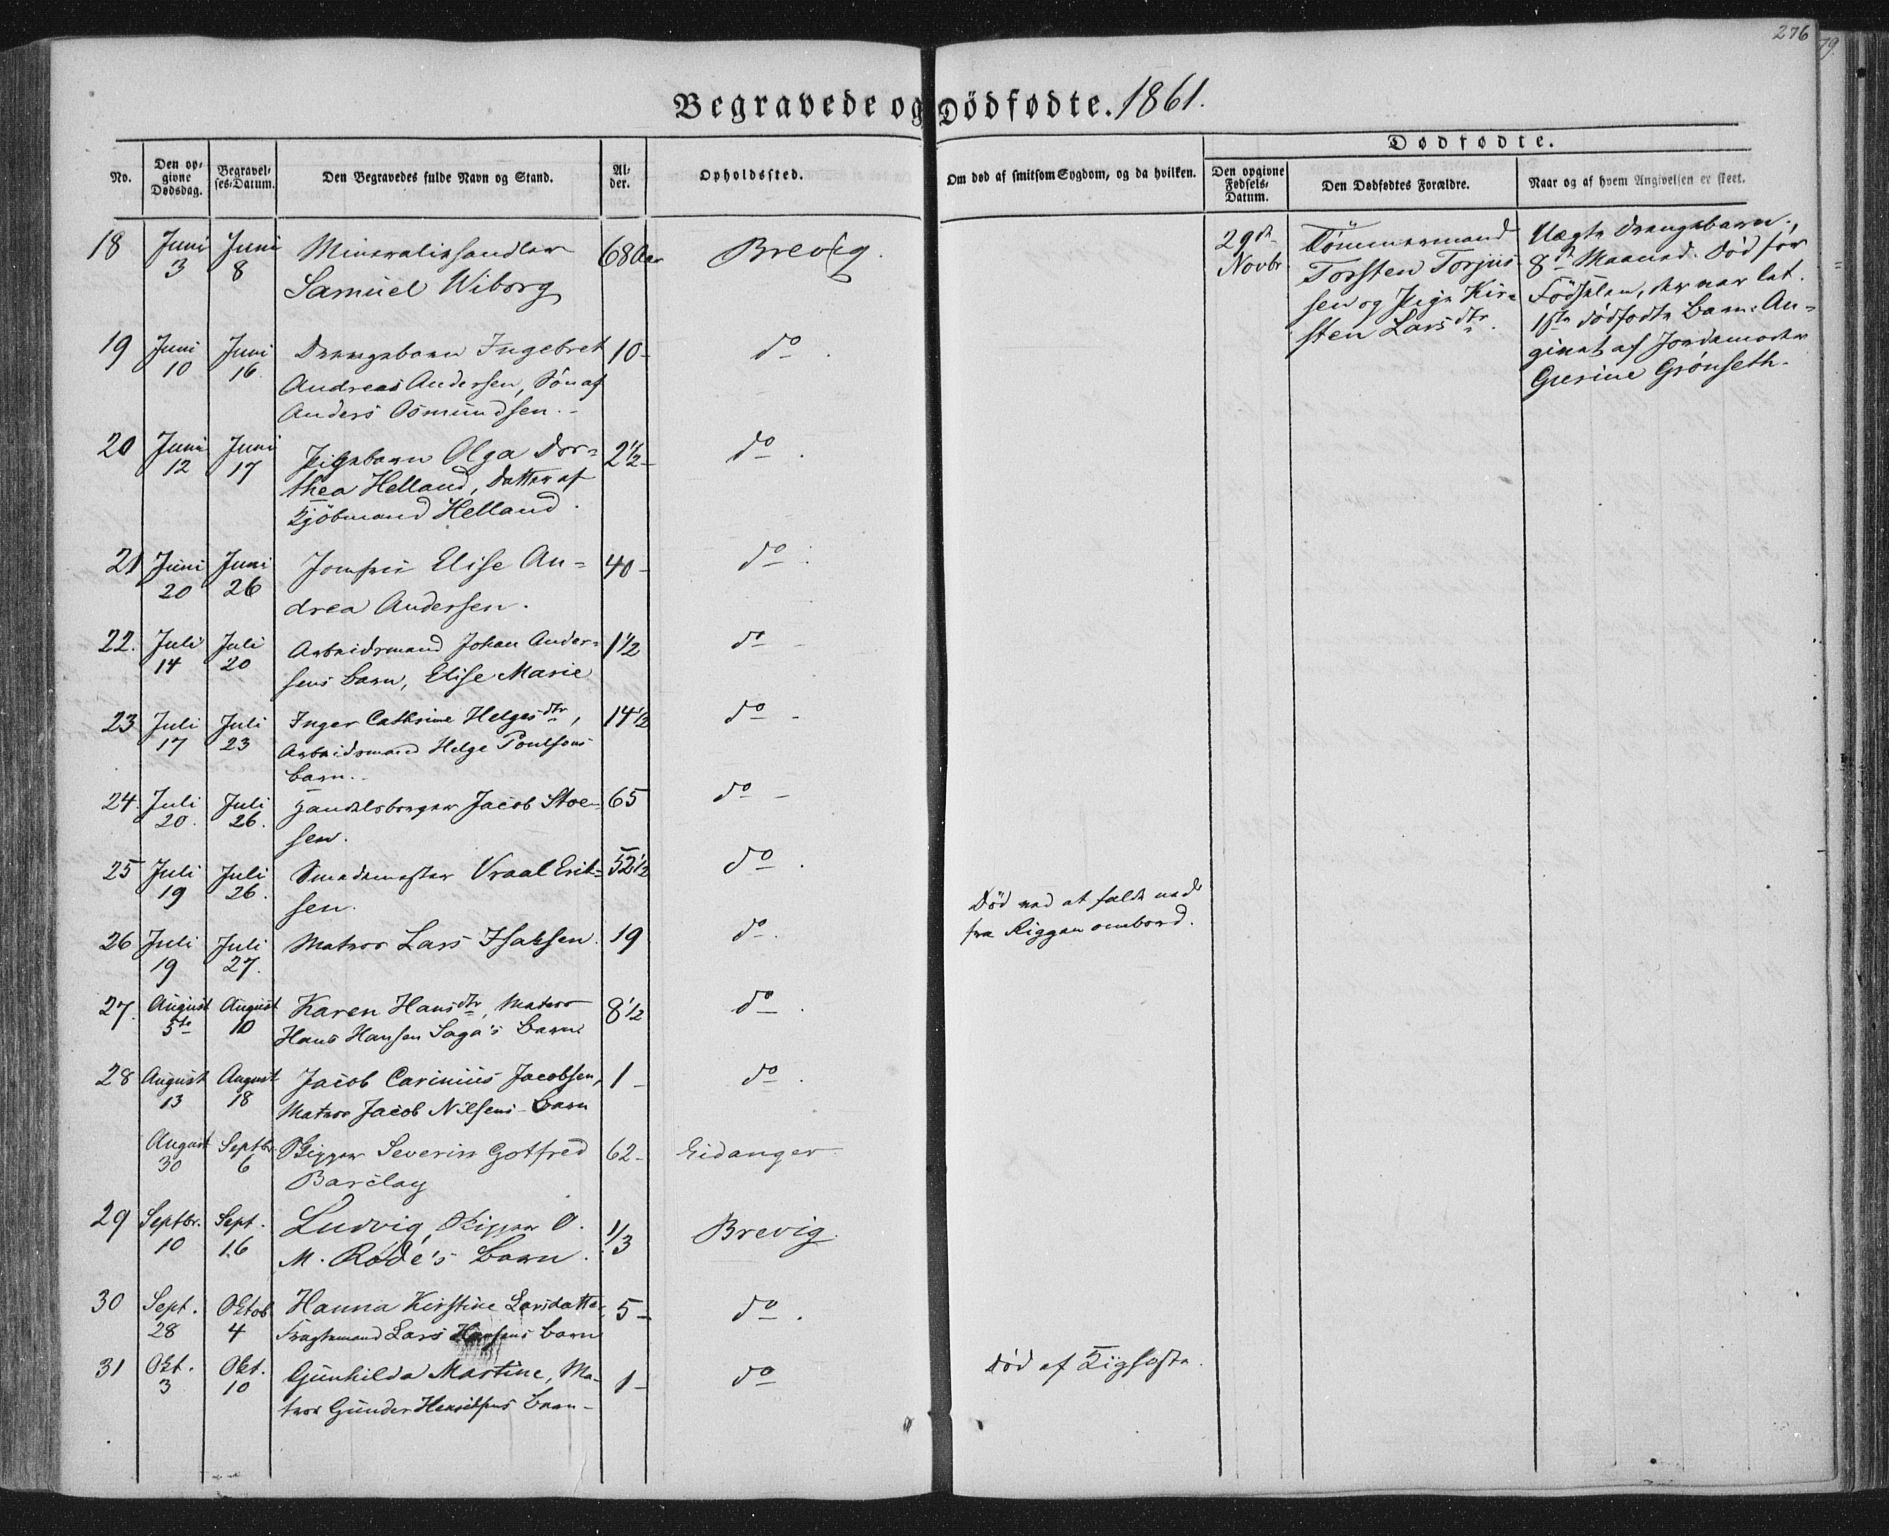 276
79.
Begravede og Dødfødte. 1861.
Dødfødte.
No.
Den opgivne Dødsdag.
Begravelses-Datum.
Den Begravedes fulde Navn og Stand.
Alder.
Opholdssted.
Om død af smitsom Sygdom, og da hvilken.
Den opgivne Fødsels-Datum.
Den Dødfødtes Forældre.
Naar og af hvem Angivelsen er skeet.
18 Juni 3 Juni 8 Mineraliehandler 68 Aar Brevig.
Samuel Wiborg
19 Juni 10 Juni 16. Drengebarn Ingebret 10- do.
Andreas Andersen, Søn af
Anders Osmundsen.-
20 Juni 12 Juni 17 Pigebarn Olga Dor= 2½- do.
thea Helland, Datter af
Kjöbmand Helland.
21 Juni 20 Juni 26 Jomfru Elise An= 40- do.
drea Andersen.
22. Juli 14 Juli 20 Arbeidsmand Johan Ander- 1½ do -
sens Barn, Elise Marie
23 Juli 17 Juli 23 Inger Cathrine Helgesdtr, 14½ do -
Arbeidsmand Helge Poulsens
Barn.-
24. Juli 20. Juli 26. Handelsborger Jacob Stoe- 65 do -
sen.
25 Juli 19 Juli 26. Smedemester Vraal Erik= 52½ do.
sen.
26 Juli 19 Juli 27. Matros Lars Isaksen. 19 do.
Død ved at falde ned
fra Riggen ombord.
27. August 5te August 10 Karen Hansdtr, Matros 8½ do.
Hans Hansen Saga's Barn
28 August 13 August 18 Jacob Carinius Jacobsen, 1- do.
Matros Jacob Nilsens Barn
August 30 Septbr. 6 Skipper Severin Gotfred 62- Eidanger.
Barclay
29 Septbr. 10 Sept. 16 Ludvig, Skipper O. 1/3 Brevig.
M. Rode's Barn.
30 Sept. 28 Oktob 4 Hanna Kirstine Larsdatter 5- do.
Fragtemand Lars Hansens Barn
31 Okt. 3 Okt. 10 Gunhilda Martine, Ma- 1- do
tros Gunder Henriksens Barn-
Død af Kighoste.
29de Novbr.
Tömmermand
Torsten Torjus-
sen og Pige Kir=
sten Larsdtr.
Uægte Drengebarn,
8de Maaned. Død før
Födselen, der var let.
1ste dödfödte Barn. An=
givet af Jordemoder
Gurine Grönseth.